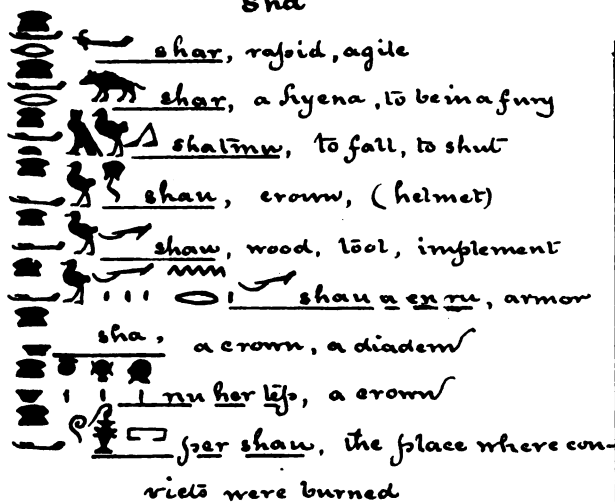 sha
shar, rapid, agile
shar, a hyena, to be in a fury
shatmu, to fall, to shut
shau, crown, (helmet)
shau, wood, tool, implement
shau a en ru, armor
sha, a crown, a diadem
nu her tep, a crown
per shau, the place where con-
victs were burned